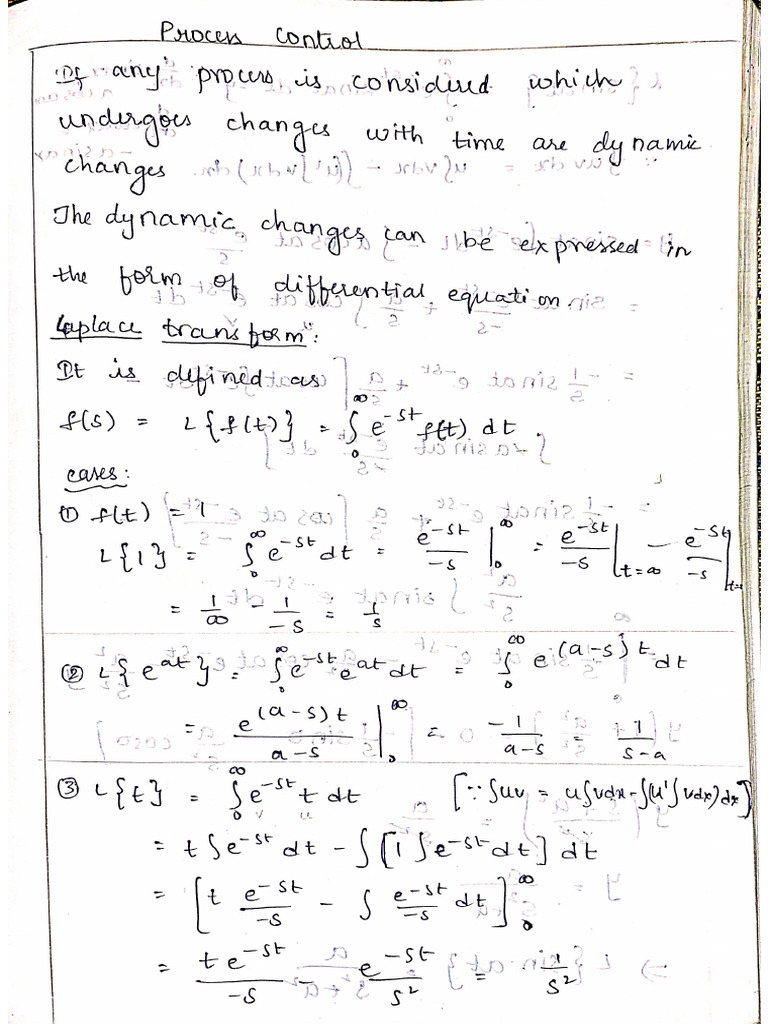 Process Control
If any process is considered which
undergoes changes with time are dynamic
changes.
The dynamic changes can be expressed in
the form of differential equation
Laplace transform:
It is defined as
f(s) = L{f(t)} = ∫₀^∞ e^(-st) f(t) dt
cases:
① f(t) = 1
L{1} = ∫₀^∞ e^(-st) dt = e^(-st)/-s |₀^∞ = e^(-st)/-s |t=∞ - e^(-st)/-s |t=
= 1/∞ - 1/-s = 1/s
② L{e^(at)} = ∫₀^∞ e^(-st) e^(at) dt = ∫₀^∞ e^((a-s)t) dt
= e^((a-s)t)/(a-s) |₀^∞ = 0 -1/(a-s) = 1/(s-a)
③ L{t} = ∫₀^∞ e^(-st) t dt [∵ ∫uv = u∫vdx - ∫(u'∫vdx)dx]
v u
= t∫e^(-st) dt - ∫[1∫e^(-st) dt] dt
= [t e^(-st)/-s - ∫ e^(-st)/-s dt]₀^∞
= te^(-st)/-s - e^(-st)/s² = 1/s²